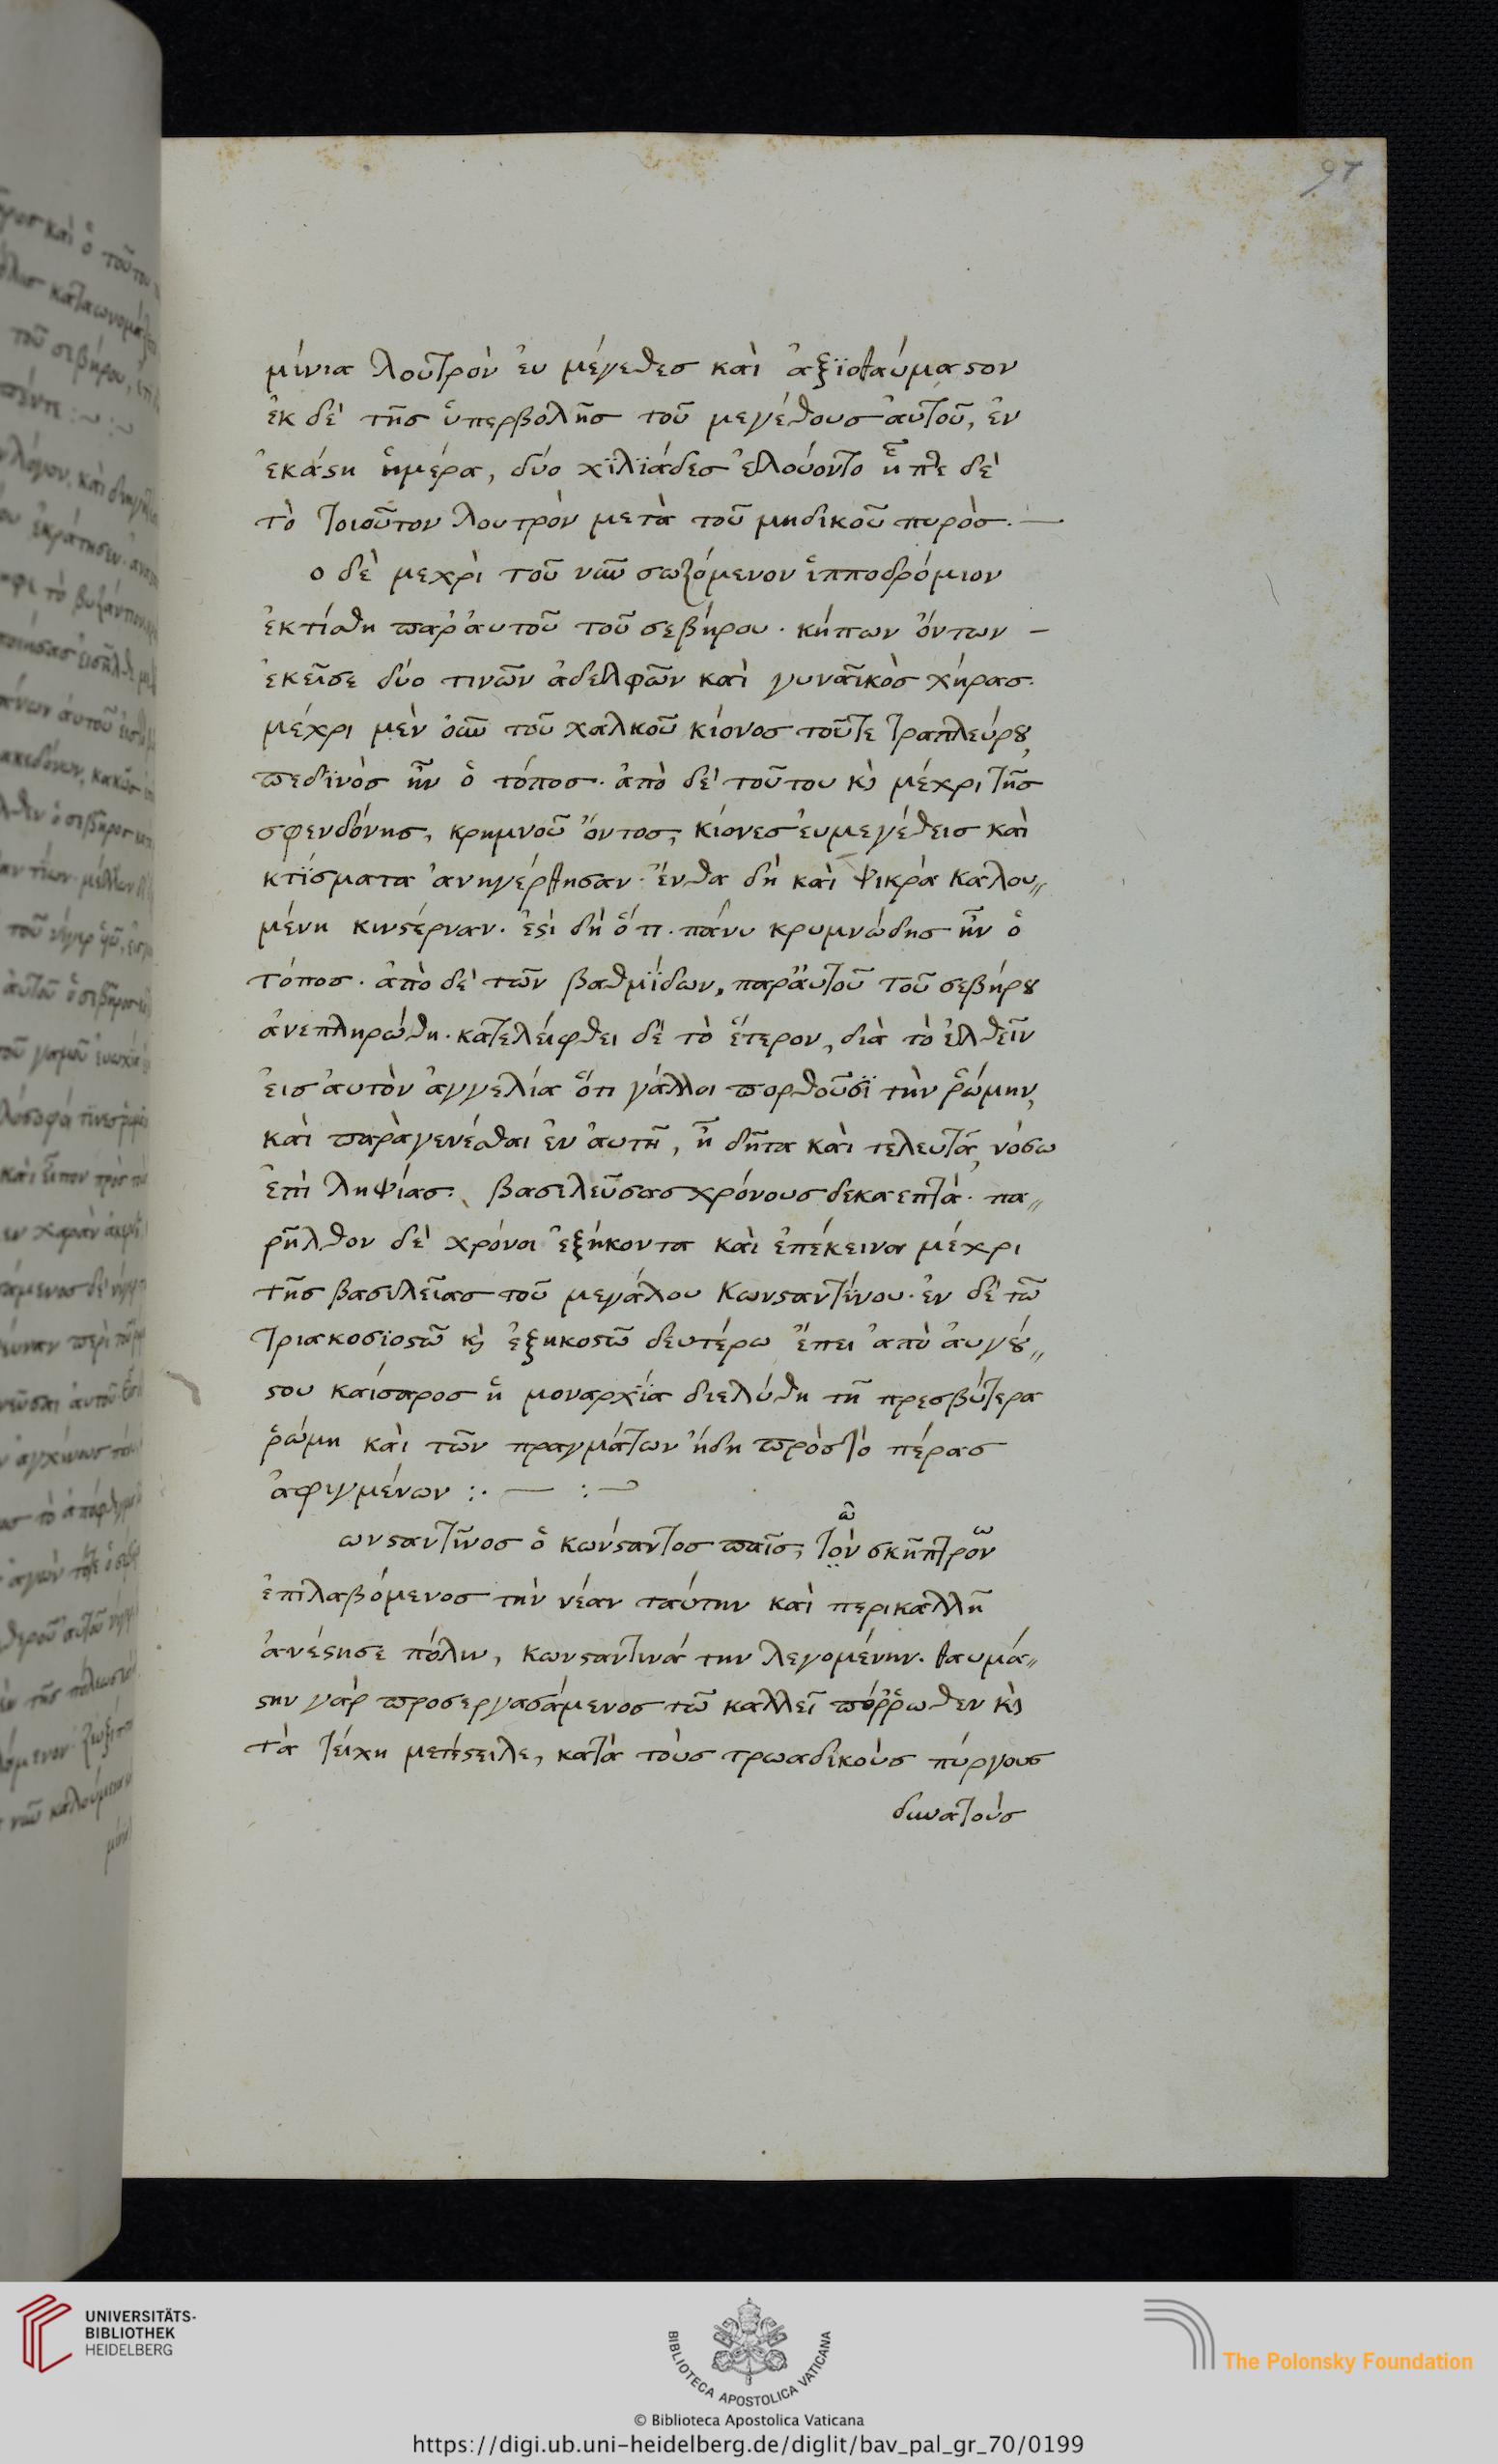 97
μίνια λοῦτρὸν ἐυ μέγεθες καὶ ἀξϊοθαύμαστον
ἐκ δὲ τῆς ὑπερβολῆς τοῦ μεγέθους αὐτοῦ, ἐν
ἑκάστη ἡμέρα, δύο χϊλϊάδες ἐλούοντο ἧπτε δὲ
τὸ τοιοῦτον λουτρὸν μετὰ τοῦ μηδικοῦ πυρὸς.
ο δὲ μεχρὶ τοῦ νῦν σωζόμενον ἱπποδρόμιον
ἐκτίσθη παρ' ἀυτοῦ τοῦ σεβήρου · κήπων ὄντων –
ἐκεῖσε δύο τινῶν ἀδελφῶν καὶ γυναῖκὸς χήρας.
μέχρι μὲν οὖν τοῦ χαλκοῦ κίονος τοῦ τετραπλεύρου,
πεδϊνὸς ἦν ὁ τόπος · ἀπὸ δὲ τοῦτου κὶ μέχρι τῆς
σφενδόνης, κρημνοῦ ὄντος, κίονες ἐυμεγέθεις καὶ
κτίσματα ἀνηγέρθησαν · ἔνθα δὴ καὶ ψικρὰ καλου„
μένη κινστέρναν · ἐστὶ δὴ ὅτι · πάνυ κρυμνώδης ἦν ὁ
τόπος · ἀπὸ δὲ τῶν βαθμίδων, παρ' ἀυτοῦ τοῦ σεβήρου
ἀνεπληρώθη · κατελείφθει δὲ τὸ ἕτερον, διὰ τὸ ἐλθεῖν
ἐις ἀυτὸν ἀγγελία ὅτι γάλλοι πορθοῦσϊ τὴν ῥώμην,
καὶ παρὰγενέσθαι ἐν ἀυτῆ, ἧ δῆτα καὶ τελευτᾶ, νόσω
ἐπὶ ληψίας · βασιλεῦσας χρόνους δεκαεπτὰ · πα„
ρῆλθον δὲ χρόνοι ἐξήκοντα καὶ ἐπέκεινα μέχρι
τῆς βασιλεῖας τοῦ μεγάλου Κωνσταντίνου · ἐν δὲ τῶ
τριακοσϊοστῶ κὶ ἑξηκοστῶ δευτέρω ἔτει ἀπὸ ἀυγού„
στου καίσαρος ἡ μοναρχϊα διελύθη τῆ πρεσβύτερα
ῥώμη καὶ τῶν πραγμάτων ἤδη πρὸς τὸ πέρας
ἀφιγμένων :· — :~
ωνσταντῖνος ὁ κώνσταντος παῖς, τὸν σκῆπτρον
ἐπιλαβόμενος τὴν νέαν ταύτην καὶ περικαλλῆ
ἀνέστησε πόλιν, κωνσταντινά την λεγομένην · θαυμά„
στην γὰρ προσεργασάμενος τῶ καλλεῖ πόῤῥωθεν κὶ
τὰ τείχη μετέστειλε, κατὰ τοὺς τρωαδικοὺς πύργους
δυνατοὺς
UNIVERSITÄTS-
BIBLIOTHEK
HEIDELBERG
BIBLIOTECA APOSTOLICA VATICANA
The Polonsky Foundation
© Biblioteca Apostolica Vaticana
https://digi.ub.uni-heidelberg.de/diglit/bav_pal_gr_70/0199